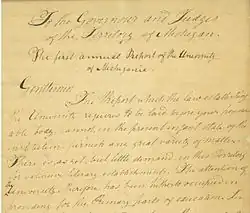 To the Governor and Judges
of the Territory of Michigan.
The first annual Report of the University
of Michigania.
Gentlemen
The Report which the law establishing
the University requires to be laid before your honor
able body, will, in the present infant state of the
institution, furnish no great variety of matter.
There is, as yet, but little demand, in this Territory
for literary establishments. The attention of
the University, therefore, has been hitherto occupied in
providing for the primary parts of education. In